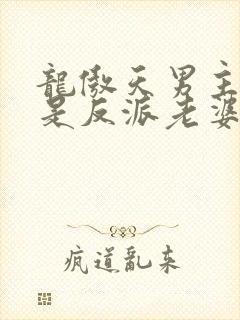 龍傲天男主
是反派老婆
疯道乱来